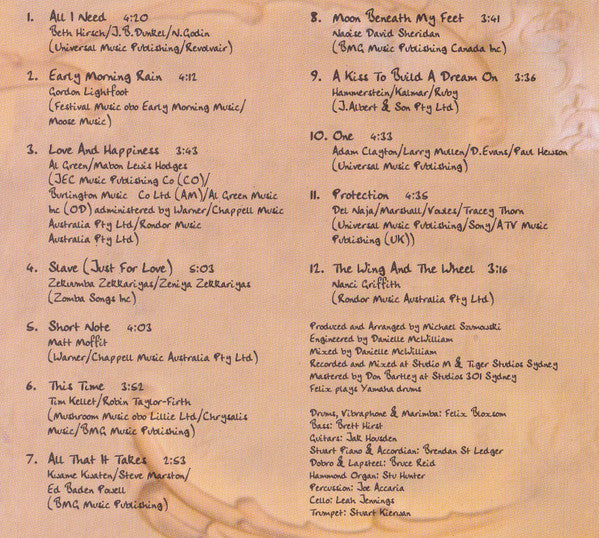 1. All I Need 4:20
Beth Hirsch/J.B.Dunkel/N.Godin
(Universal Music Publishing/Revolvair)
2. Early Morning Rain 4:12
Gordon Lightfoot
(Festival Music obo Early Morning Music/
Moose Music)
3. Love And Happiness 3:43
Al Green/Mabon Lewis Hodges
(JEC Music Publishing Co (CO)/
Burlington Music Co Ltd (AM)/Al Green Music
Inc (OD) administered by Warner/Chappell Music
Australia Pty Ltd/Rondor Music
Australia Pty Ltd)
4. Slave (Just For Love) 5:03
Zekuumba Zekkariyas/Zeniya Zekkariyas
(Zomba Songs Inc)
5. Short Note 4:03
Matt Moffit
(Warner/Chappell Music Australia Pty Ltd)
6. This Time 3:52
Tim Kellet/Robin Taylor-Firth
(Mushroom Music obo Lillie Ltd/Chrysalis
Music/BMG Music Publishing)
7. All That It Takes 2:53
Kwame Kwaten/Steve Marston/
Ed Baden Powell
(BMG Music Publishing)
8. Moon Beneath My Feet 3:41
Naoise David Sheridan
(BMG Music Publishing Canada Inc)
9. A Kiss To Build A Dream On 3:36
Hammerstein/Kalmar/Ruby
(J.Albert & Son Pty Ltd)
10. One 4:33
Adam Clayton/Larry Mullen/D.Evans/Paul Hewson
(Universal Music Publishing)
11. Protection 4:35
Del Naja/Marshall/Vowles/Tracey Thorn
(Universal Music Publishing/Sony/ATV Music
Publishing (UK))
12. The Wing And The Wheel 3:16
Nanci Griffith
(Rondor Music Australia Pty Ltd)
Produced and Arranged by Michael Szumowski
Engineered by Danielle McWilliam
Mixed by Danielle McWilliam
Recorded and Mixed at Studio M & Tiger Studios Sydney
Mastered by Don Bartley at Studios 301 Sydney
Felix plays Yamaha drums
Drums, Vibraphone & Marimba: Felix Bloxsom
Bass: Brett Hirst
Guitars: Jak Housden
Stuart Piano & Accordian: Brendan St Ledger
Dobro & Lapsteel: Bruce Reid
Hammond Organ: Stu Hunter
Percussion: Joe Accaria
Cello: Leah Jennings
Trumpet: Stuart Kirwan